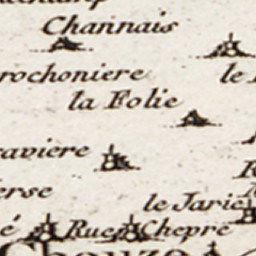 Channais
rochoniere le
la Folie
aviere
erse
le Jarie
é Rue Chepre